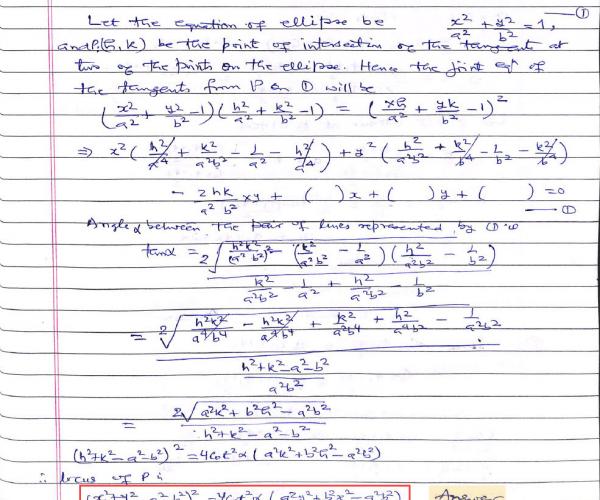 Let the equation of ellipse be x²/a² + y²/b² = 1, — ①
and P(h, k) be the point of intersection of the tangents at
two of the points on the ellipse. Hence the joint eqⁿ of
the tangents from P on ① will be
(x²/a² + y²/b² - 1)(h²/a² + k²/b² - 1) = (xh/a² + yk/b² - 1)²
⇒ x²(h²/a⁴ + k²/a²b² - 1/a² - h²/a⁴) + y²(h²/a²b² + k²/b⁴ - 1/b² - k²/b⁴)
- 2hk/a²b² xy + ( )x + ( )y + ( ) = 0
— ①
Angle α between the pair of lines represented by ① is
tanα = 2√(h²k²/(a²b²)² - (k²/a²b² - 1/a²)(h²/a²b² - 1/b²))
k²/a²b² - 1/a² + h²/a²b² - 1/b²
= 2√(h²k²/a⁴b⁴ - h²k²/a⁴b⁴ + k²/a²b⁴ + h²/a⁴b² - 1/a²b²)
h²+k²-a²-b²
a²b²
= 2√(a²k² + b²h² - a²b²)
h²+k²-a²-b²
(h²+k²-a²-b²)² = 4cot²α (a²k²+b²h²-a²b²)
∴ locus of P is
(x²+y²-a²-b²)² = 4cot²α (a²y²+b²x²-a²b²) Answer